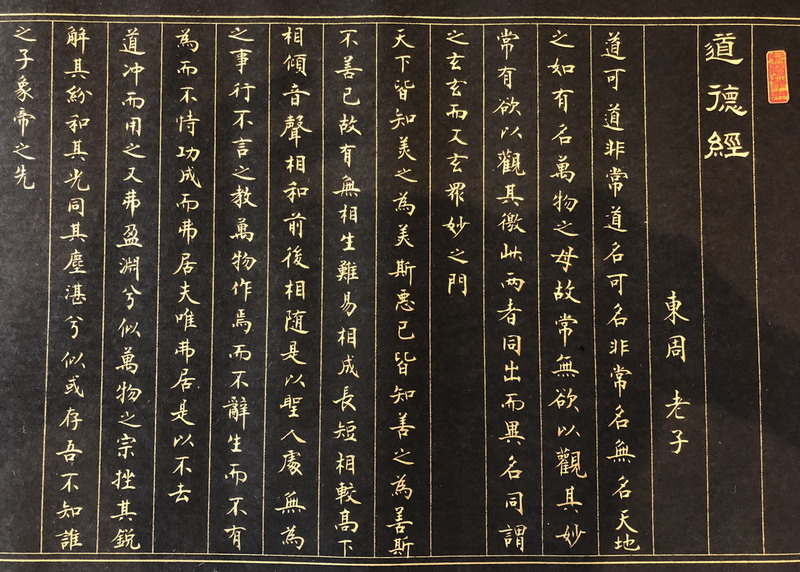 道德經
東周 老子
道可道非常道名可名非常名無名天地
之如有名萬物之母故常無欲以觀其妙
常有欲以觀其徼此兩者同出而異名同謂
之玄玄而又玄眾妙之門
天下皆知美之為美斯惡已皆知善之為善斯
不善已故有無相生難易相成長短相較高下
相傾音聲相和前後相隨是以聖人處無為
之事行不言之教萬物作焉而不辭生而不有
為而不恃功成而弗居夫唯弗居是以不去
道冲而用之又弗盈淵兮似萬物之宗挫其銳
解其紛和其光同其塵湛兮似或存吾不知誰
之子象帝之先